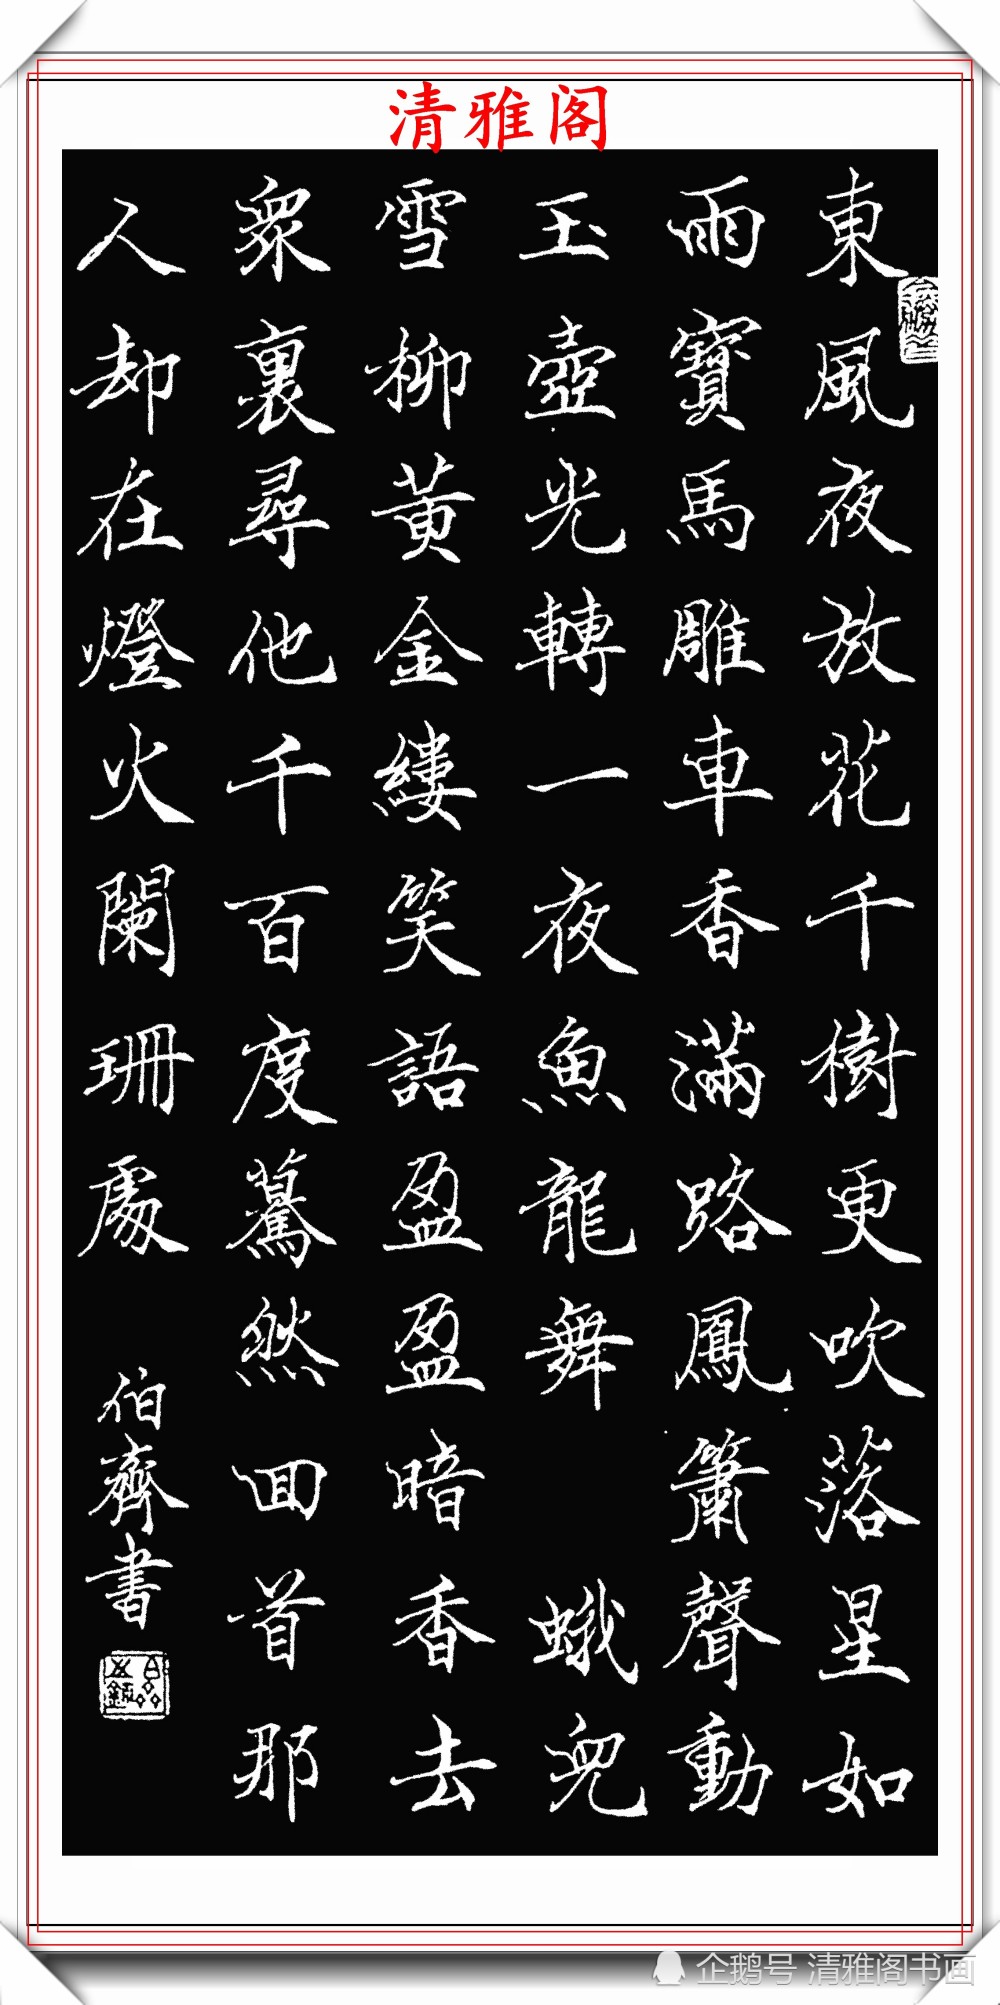 清雅阁
東風夜放花千樹更吹落星如
雨寶馬雕車香滿路鳳簫聲動
玉壺光轉一夜魚龍舞 蛾兒
雪柳黃金縷笑語盈盈暗香去
眾裏尋他千百度驀然回首那
人却在燈火闌珊處
伯齊書
企鹅号 清雅阁书画